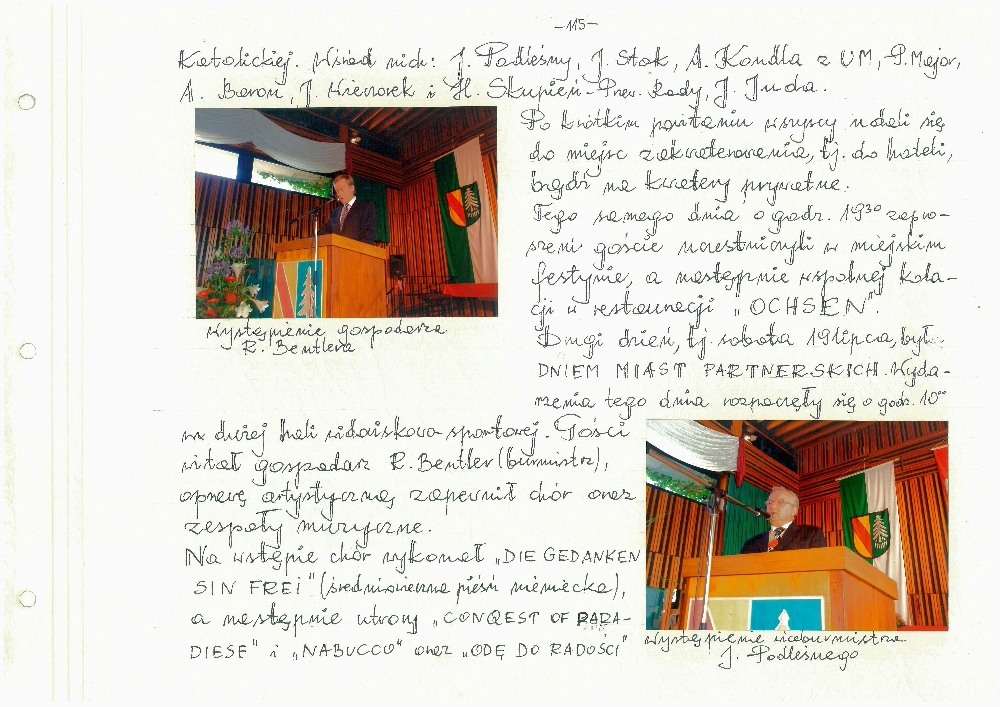 -115-
Katolickiej. Wśród nich: J. Podleśny, J. Stok, A. Kondla z UM, P. Major,
A. Baron, J. Wieczorek i H. Skupień - Prew. Rady, J. Juda.
Po krótkim powitaniu wszyscy udali się
do miejsc zakwaterowania, tj. do hoteli,
bądź na kwatery prywatne.
Tego samego dnia o godz. 19³⁰ zapro-
szeni goście uczestniczyli w miejskim
festynie, a następnie wspólnej kola-
cji w restauracji „OCHSEN".
Drugi dzień, tj. sobota 19 lipca, był
DNIEM MIAST PARTNERSKICH. Wyda-
rzenia tego dnia rozpoczęły się o godz. 10⁰⁰
wystąpienie gospodarza
R. Bentlera
w dużej hali widowiskowo-sportowej. Gości
witał gospodarz R. Bentler (burmistrz),
oprawę artystyczną zapewnił chór oraz
zespoły muzyczne.
Na wstępie chór wykonał „DIE GEDANKEN
SIN FREI" (średniowieczna pieśń niemiecka),
a następnie utwory „CONQEST OF PARA-
DIESE" i „NABUCCO" oraz „ODĘ DO RADOŚCI"
wystąpienie wiceburmistrza
J. Podleśnego